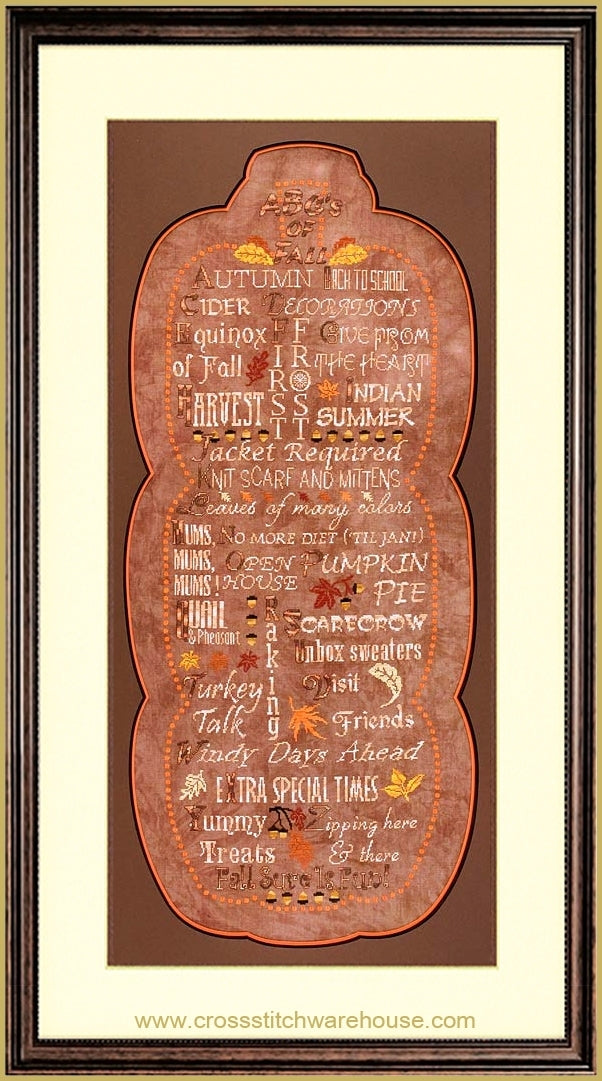 ABC's
OF
FALL
AUTUMN BACK TO SCHOOL
CIDER DECORATIONS
Equinox of Fall
FIRST FROST
GIVE FROM THE HEART
HARVEST
INDIAN SUMMER
Jacket Required
KNIT SCARF AND MITTENS
Leaves of many colors
MUMS, MUMS, MUMS!
NO MORE DIET ('TIL JAN!)
OPEN HOUSE
PUMPKIN PIE
QUAIL & Pheasant
Raking
SCARECROW
Unbox sweaters
Turkey Talk
Visit Friends
Windy Days Ahead
EXTRA SPECIAL TIMES
Yummy Treats
Zipping here & there
Fall Sure Is Fun!
www.crossstitchwarehouse.com